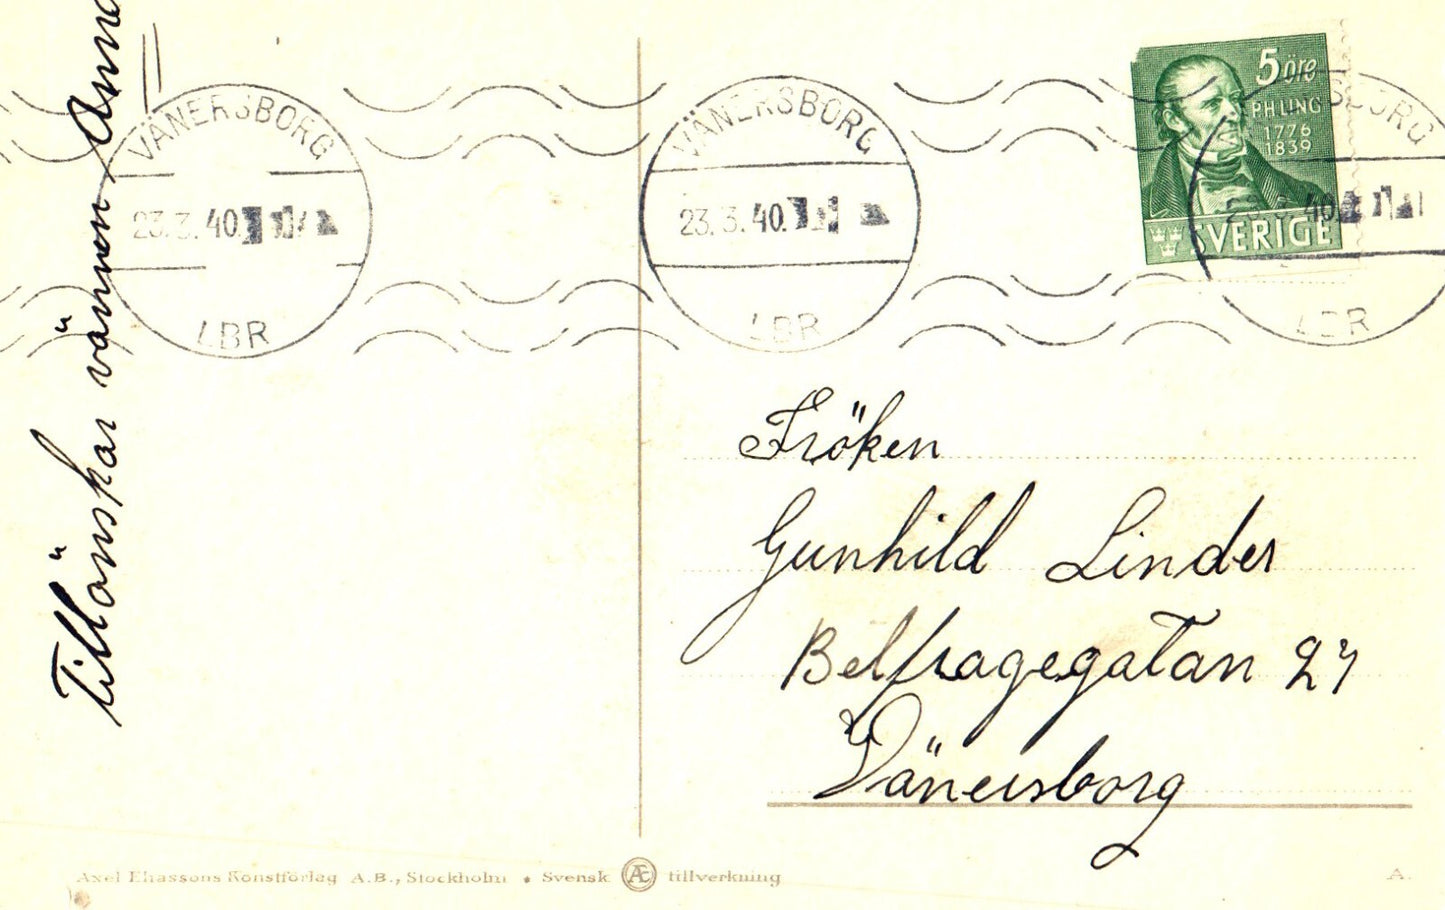 Tillönskar vännen Anna
VÄNERSBORG
23.3.40.
LBR
VÄNERSBORG
23.3.40.
LBR
5 öre
P.H.LING
1776
1839
SVERIGE
SBORG
40
LBR
Fröken
Gunhild Linder
Belfragegatan 27
Vänersborg
Axel Eliassons Konstförlag A.B., Stockholm • Svensk Æ tillverkning
A.